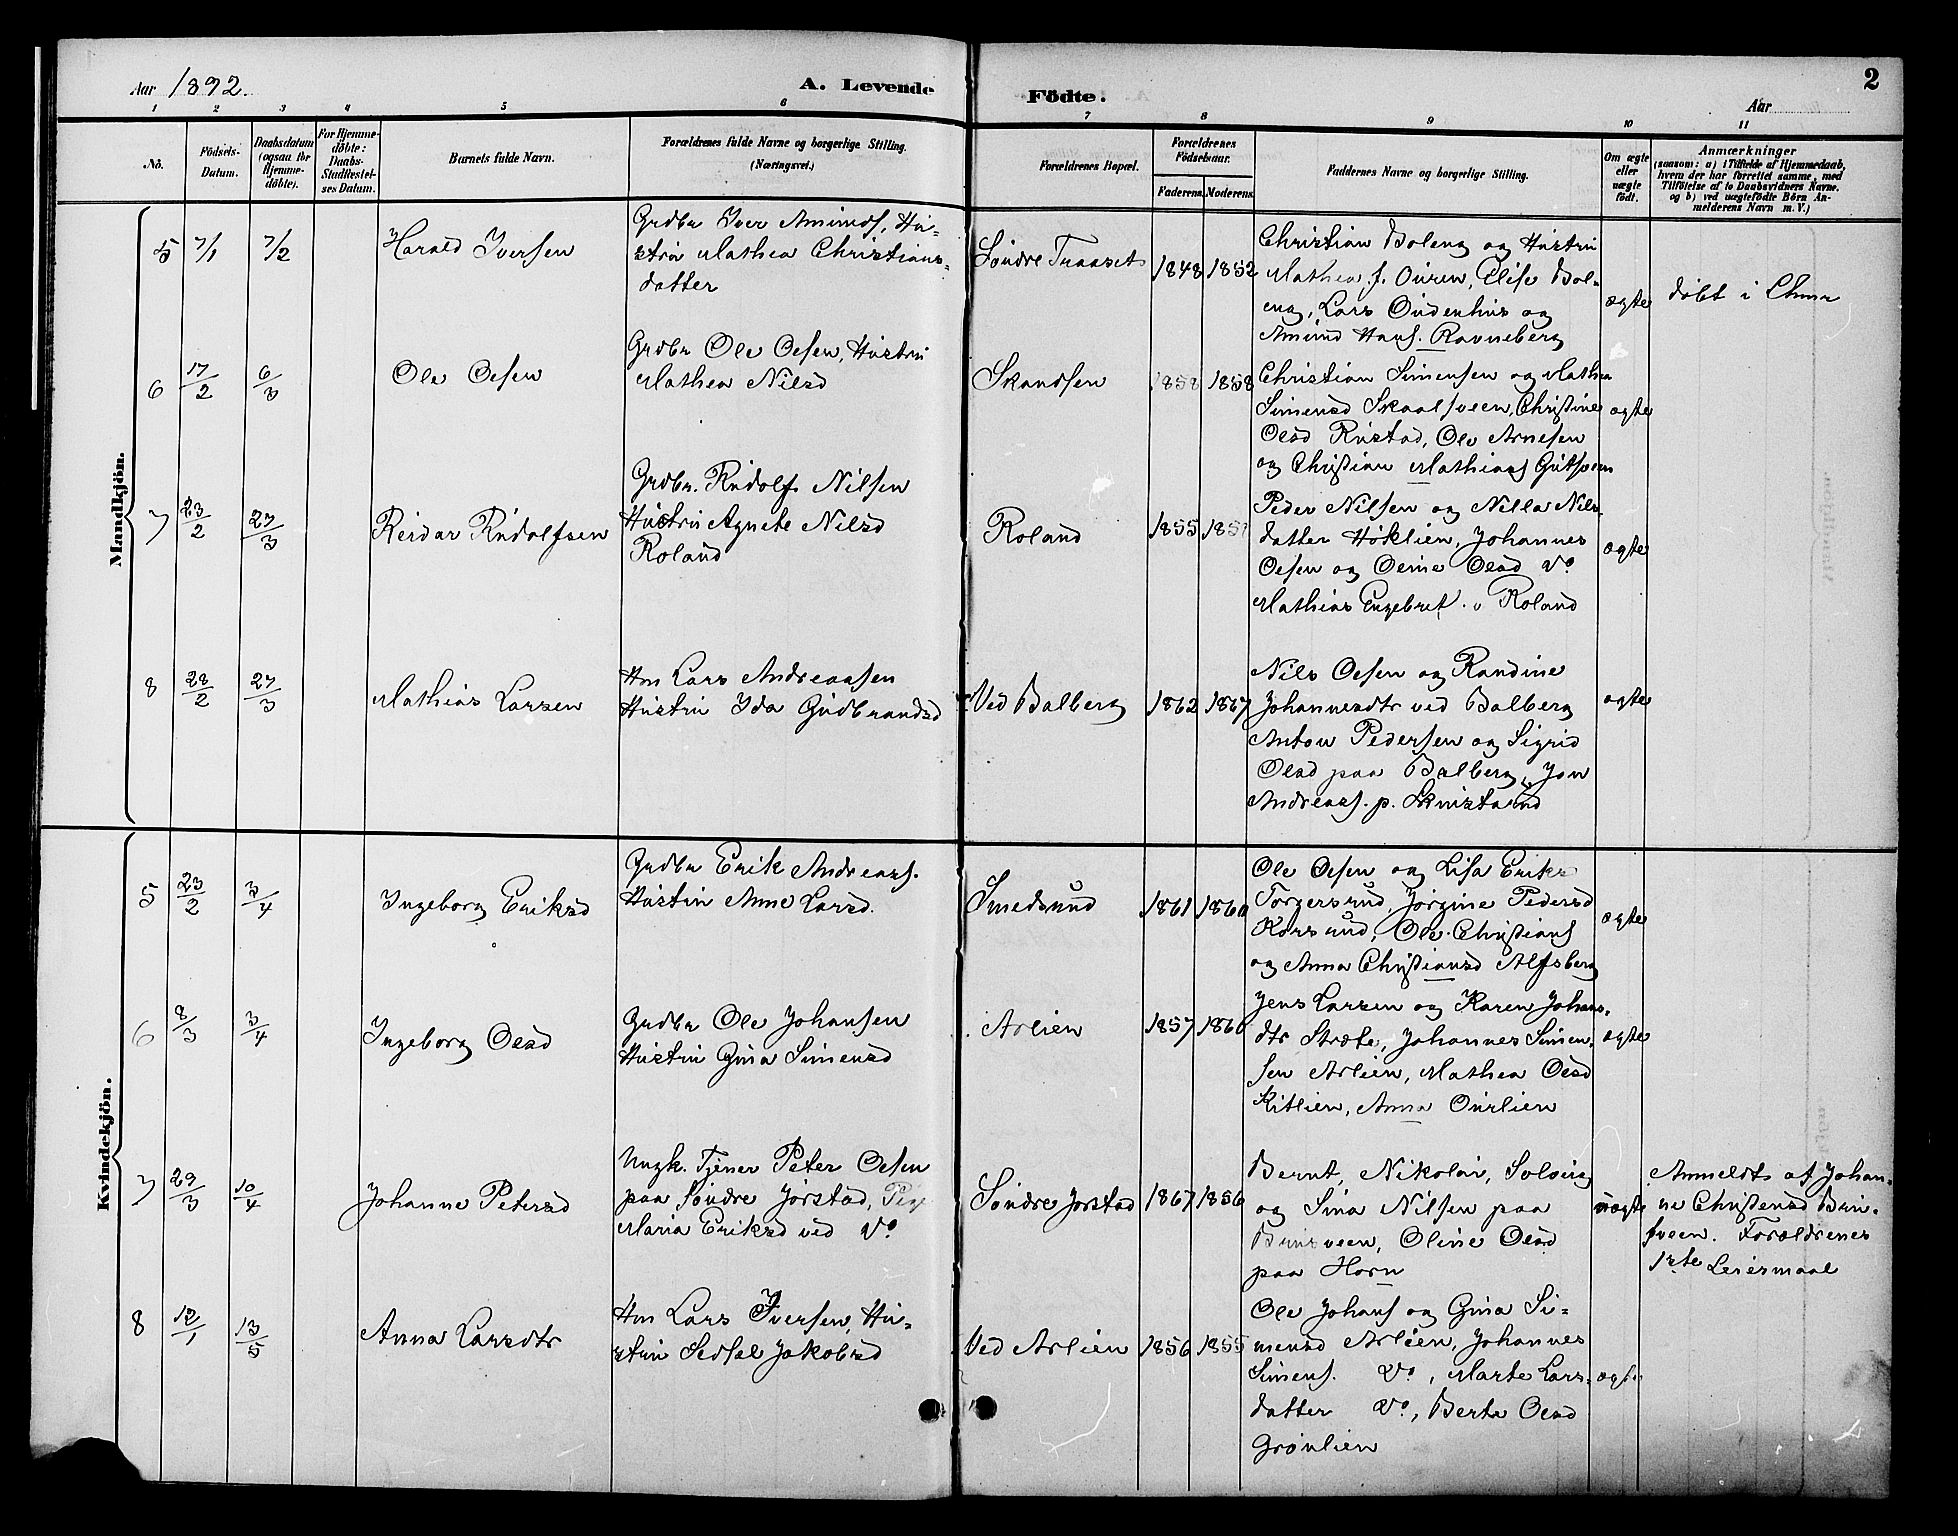 Aar 1892.
A. Levende
Födte.
Aar
2
1 2 3 4 5 6 7 8 9 10 11
No.
Födsels-
Datum.
Daabsdatum
(ogsaa for
Hjemme-
döbte).
For Hjemme-
döbte:
Daabs-
Stadfæstel-
ses Datum.
Barnets fulde Navn.
Forældrenes fulde Navne og borgerlige Stilling.
(Næringsvei.)
Forældrenes Bopæl.
Forældrenes
Födselsaar.
Faderens.
Moderens.
Faddernes Navne og borgerlige Stilling.
Om ægte
eller
uægte
født.
Anmærkninger
(saasom: a) i Tilfælde af Hjemmedaab,
hvem der har forrettet samme, med
Tilföielse af to Daabsvidners Navne.
og b) ved uægtefödte Börn An-
melderens Navn m. V.)
Mandkjön.
5 7/1 7/2
Harald Iversen
Grdbr Iver Amunds, Hu-
stru Mathea Christians-
datter
Søndre Traaset
1848 1852
Christian Boleng og Hustru
Mathea f. Ouren, Elise Bol-
eng, Lars Oudenhus og
Amund Hans. Ravneberg
ægte
døbt i
6 17/2 6/3
Ole Olsen
Grdbr Ole Olsen, Hustru
Mathea Nilsd
Skandsen
1858 1858
Christian Simensen og Mathea
Simensd Skaalsveen, Christine
Olsd Rustad, Ole Arnesen
og Christian Mathiass
ægte
7 23/2 27/3
Reidar Rudolfsen
Grdbr. Rudolf Nilsen
Hustru Agnete Nilsd
Roland
Roland
1855
Peder Nilsen og Nilla Nils-
datter Høklien, Johannes
Olsen og Oline Olsd do
Mathias Engebret. v Roland
ægte
8 28/2 27/3
Mathias Larsen
Hm Lars Andreassen
Hustru Ida Gudbrandsd
Ved Balberg
1862 1867
Nils Olsen og Randine
Johannesdtr ved Balberg
Anton Pedersen og Sigrid
Olsd paa Balberg, Jon
Andreass. p.
ægte
Kvindekjön.
5 23/2 3/4
Ingeborg Eriksd
Grdbr Erik Andreass.
Hustru Anne Larsd.
Smedsund
1861 1860
Ole Olsen og Lisa Eriks
Torgersrud, Jørgine Pedersd
Korsrud, Ole Christians
og Anna Christiansd Alfsberg
ægte
6 8/3 3/4
Ingeborg Olsd
Grdbr Ole Johansen
Hustru Gina Simensd
Arlien
1857 1860
Jens Larsen og Karen Johans-
dtr Stræte, Johannes Simen-
sen Arlien, Mathea Olsd
Kitlien, Anna Ourlien
ægte
7 29/3 10/4
Johanne Petersd
Ungk. Tjener Peter Olsen
paa Søndre Jørstad, Pige
Maria Eriksd ved do
Søndre Jørstad
1867 1856
Bernt, Nikolai, Solveig
og Sina Nilsen paa
Brunsveen, Oline Olsd
paa Horn
uægte
Anmeldts af Johan-
ne Christensd Brun-
sveen. Forældrenes
1ste Leiermaal
8 12/1 13/5
Anna Larsdtr
Hm Lars Iversen, Hu-
stru Sedsel Jakobsd
Ved Arlien
1856 1855
Ole Johans og Gina Si-
mensd Arlien, Johannes
Simens. do, Marte Lars-
datter do, Berte Olsd
Grønlien
ægte